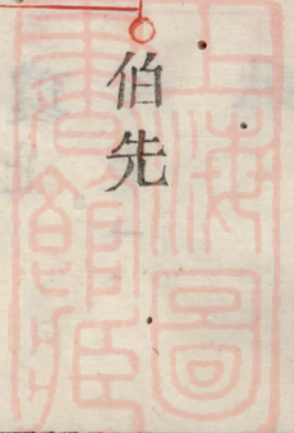 伯先
上海圖
書館藏